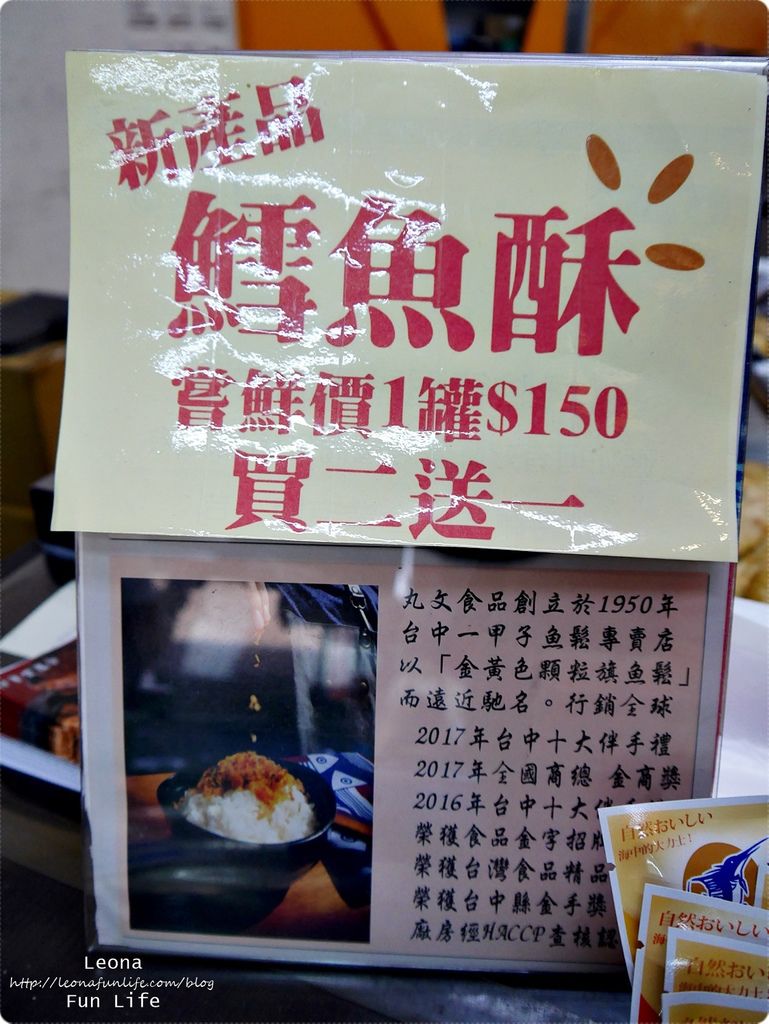 新產品
鱈魚酥
嘗鮮價1罐$150
買二送一
丸文食品創立於1950年
台中一甲子魚鬆專賣店
以「金黃色顆粒旗魚鬆」
而遠近馳名。行銷全球
2017年台中十大伴手禮
2017年全國商總 金商獎
2016年台中十大伴手
榮獲食品金字招牌
榮獲台灣食品精品
榮獲台中縣金手獎
廠房經HACCP查核認
自然おいしい
海中的大力士!
自然おいしい
海
自然おい
海中的大力士
自然おい
Leona
http://leonafunlife.com/blog
Fun Life